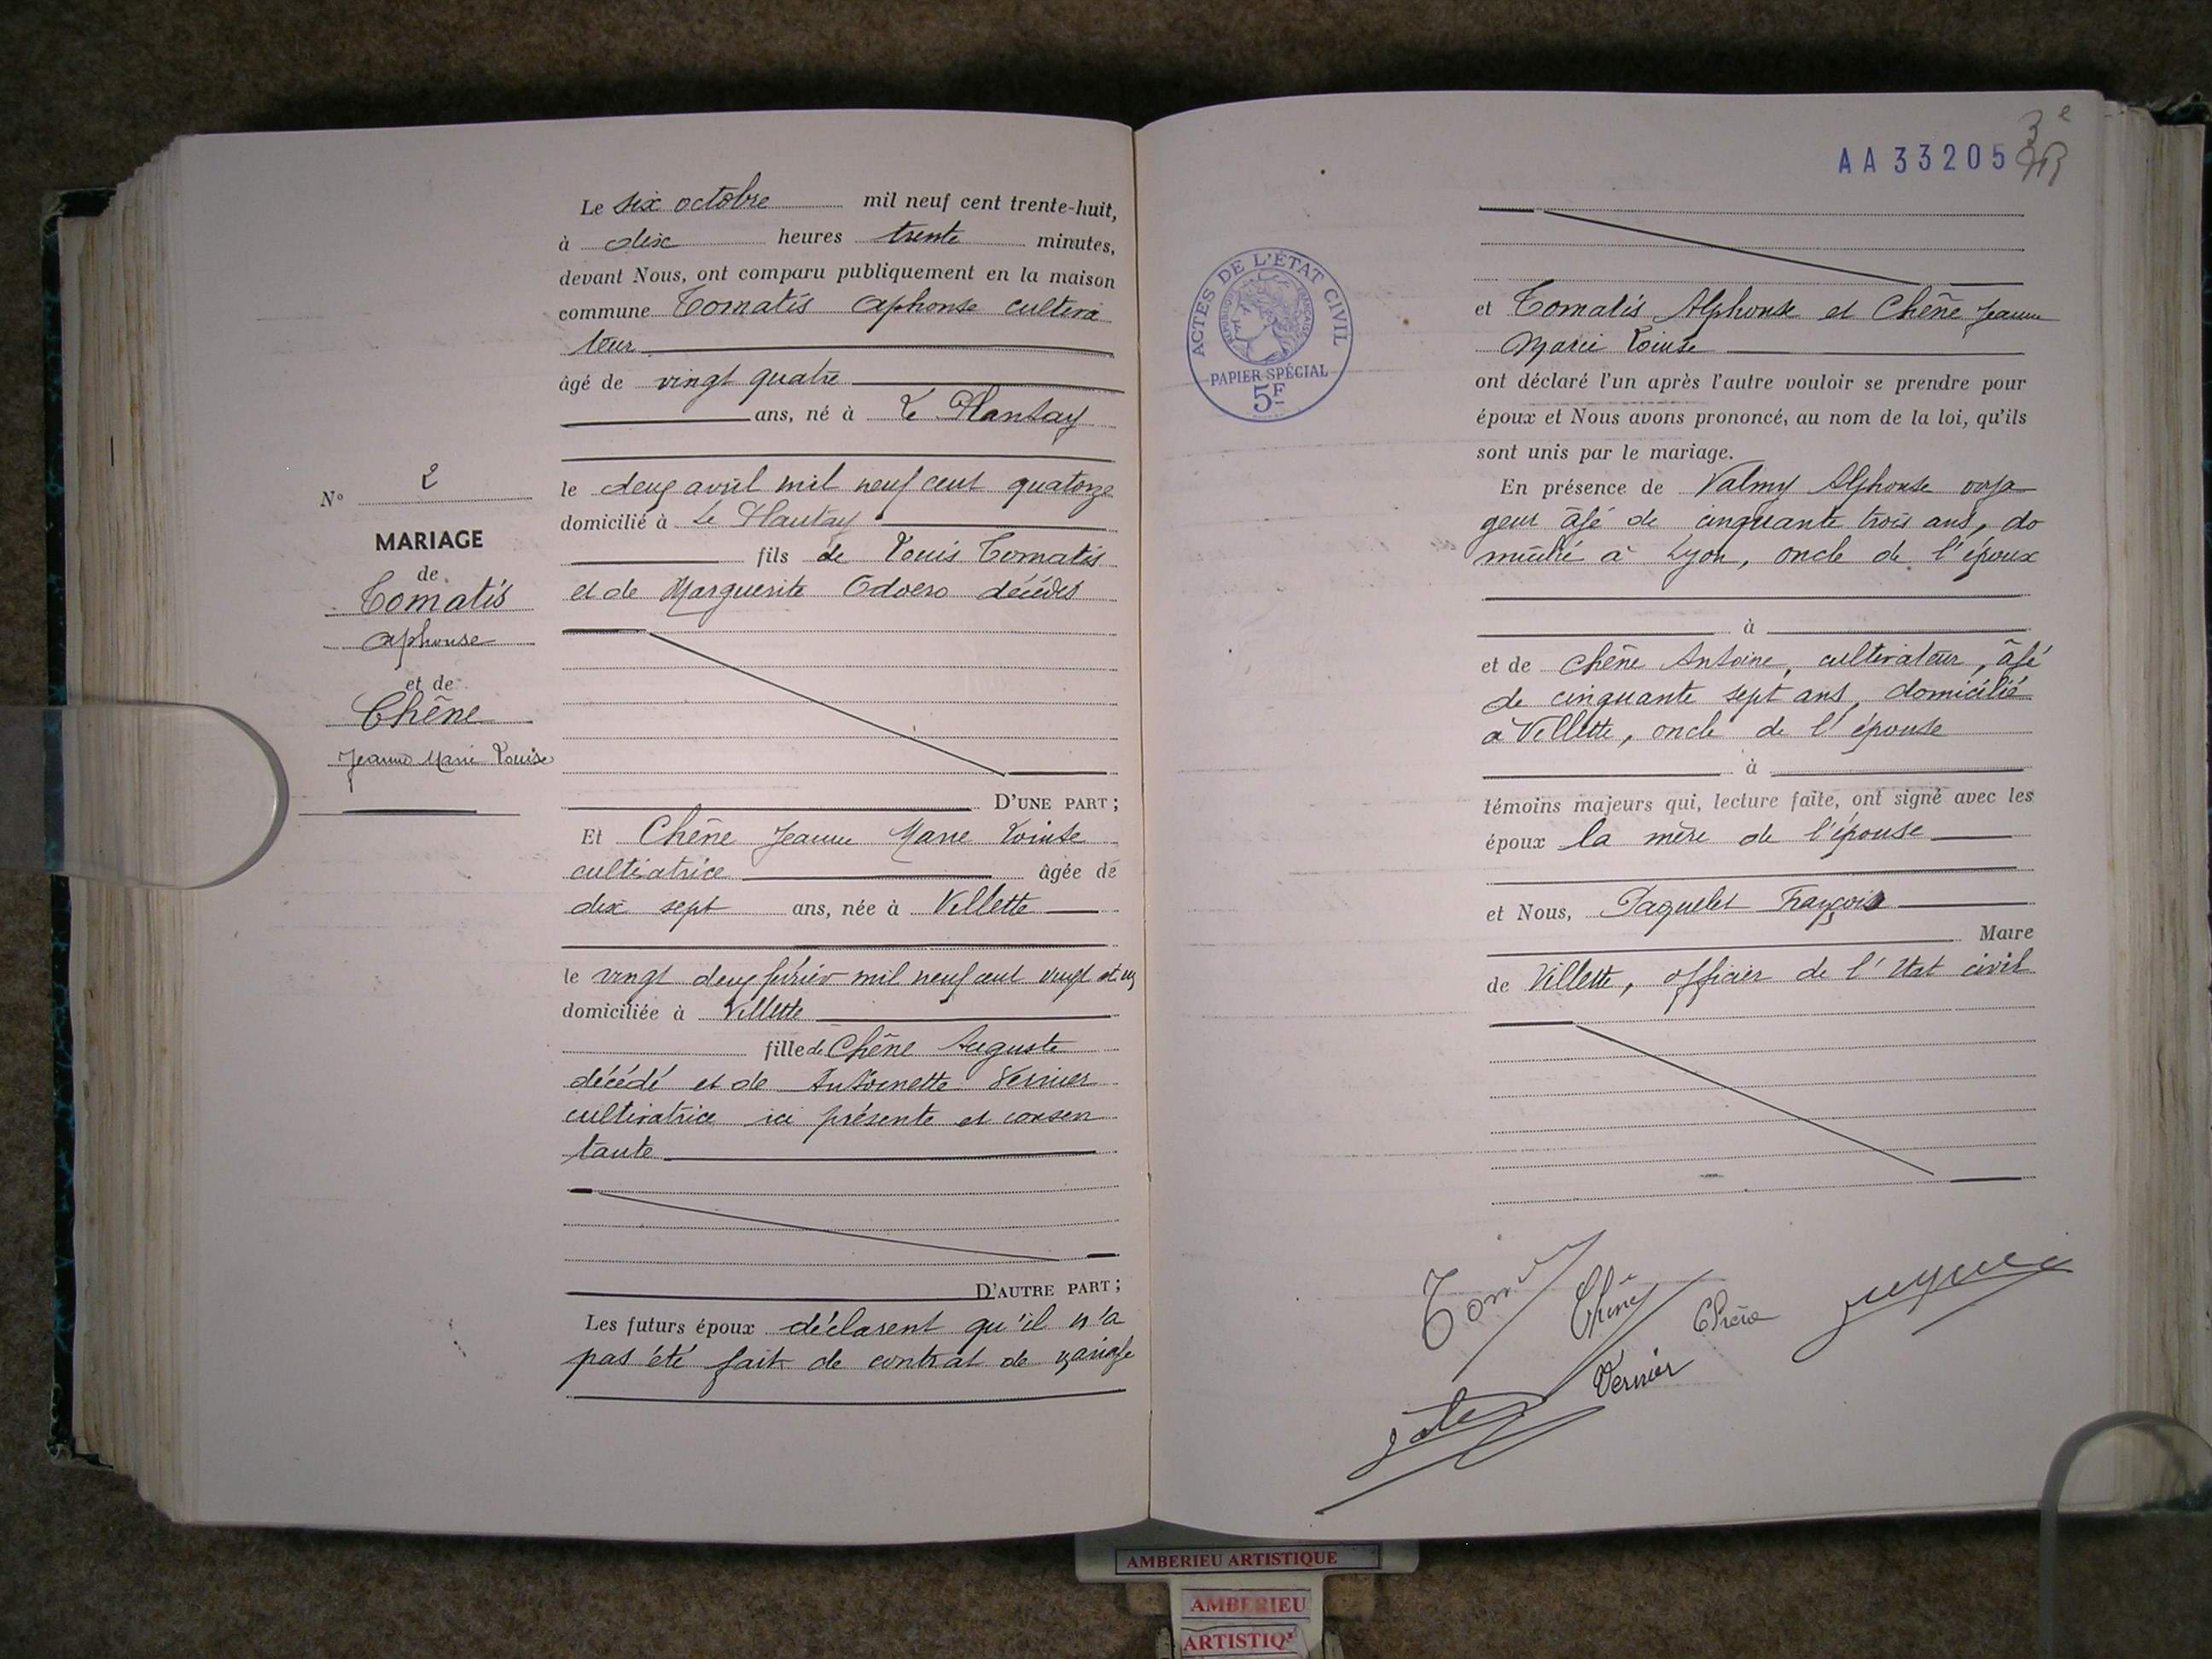 Le six octobre mil neuf cent trente-huit,
à dix heures trente minutes,
devant Nous, ont comparu publiquement en la maison
commune Tomatis Aphonse cultiva
teur
âgé de vingt quatre
ans, né à Le Plantay
le deux avril mil neuf cent quatorze
domicilié à Le Plantay
fils de Louis Tomatis
et de Marguerite Odoero décédés
N° 2
MARIAGE
de
Tomatis
Aphonse
et de
Chêne
Jeanne Marie Louise
D'UNE PART;
Et Chêne Jeanne Marie Louise
cultivatrice âgée de
dix sept ans, née à Villette
le vingt deux février mil neuf cent vingt et un
domiciliée à Villette
fille de Chêne Auguste
décédé et de Antoinette Vernier
cultivatrice ici présente et consen
tante
D'AUTRE PART;
Les futurs époux déclarent qu'il n'a
pas été fait de contrat de mariage
AA 33205
ACTES DE L'ÉTAT CIVIL
RÉPUBLIQUE FRANÇAISE
PAPIER SPÉCIAL
5F
et Tomatis Alphonse et Chêne Jeanne
Marie Louise
ont déclaré l'un après l'autre vouloir se prendre pour
époux et Nous avons prononcé, au nom de la loi, qu'ils
sont unis par le mariage.
En présence de Valmy Alphonse voya
geur âgé de cinquante trois ans, do
micilié à Lyon, oncle de l'époux
à
et de Chêne Antoine, cultivateur, âgé
de cinquante sept ans, domicilié
a Villette, oncle de l'épouse
à
témoins majeurs qui, lecture faite, ont signé avec les
époux la mère de l'épouse
et Nous, Paquelet François
Maire
de Villette, officier de l'Etat civil
Chêne
Vernier
AMBERIEU ARTISTIQUE
AMBERIEU
ARTISTIQ